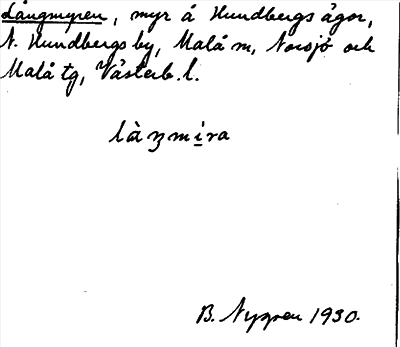 Långmyren, myr å Hundbergs ägor,
N. Hundbergs by, Malå m, Norsjö och
Malå tg, Västerb. l.
làŋmira
B. Nygren 1930.